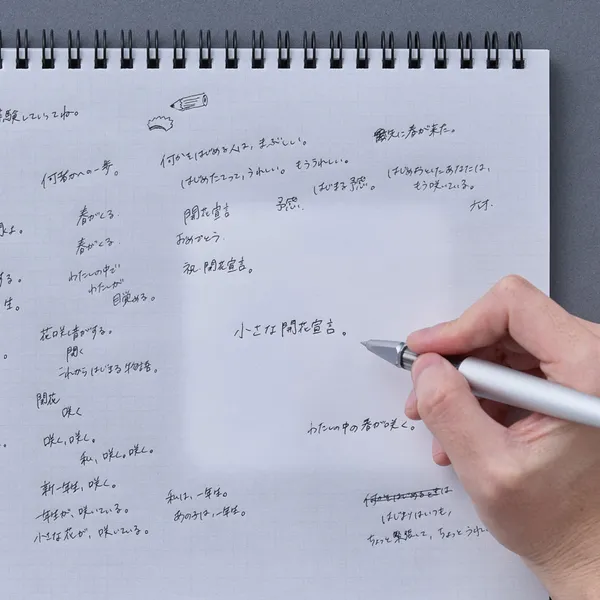 験していってね。
何者かへの一歩。
春がくる
春がくる
わたしの中で
わたしが
目覚める。
花咲く音がする。
開く
これからはじまる物語。
開花
咲く
咲く、咲く。
私、咲く。咲く。
新一年生、咲く。
一年生が、咲いている。
小さな花が、咲いている。
する。
生。
何かをはじめる人は、まぶしい。
はじめたてって、うれしい。もううれしい。
開花宣言
おめでとう
祝・開花宣言。
予感。
はじまる予感。
先に春が来た。
はじめようとしたあなたは、
もう咲いている。
小さな開花宣言。
わたしの中の春が咲く。
私は、一年生。
あの子は、一年生。
何かをはじめるときは
はじまりはいつも、
ちょっと緊張して、ちょっとうれし